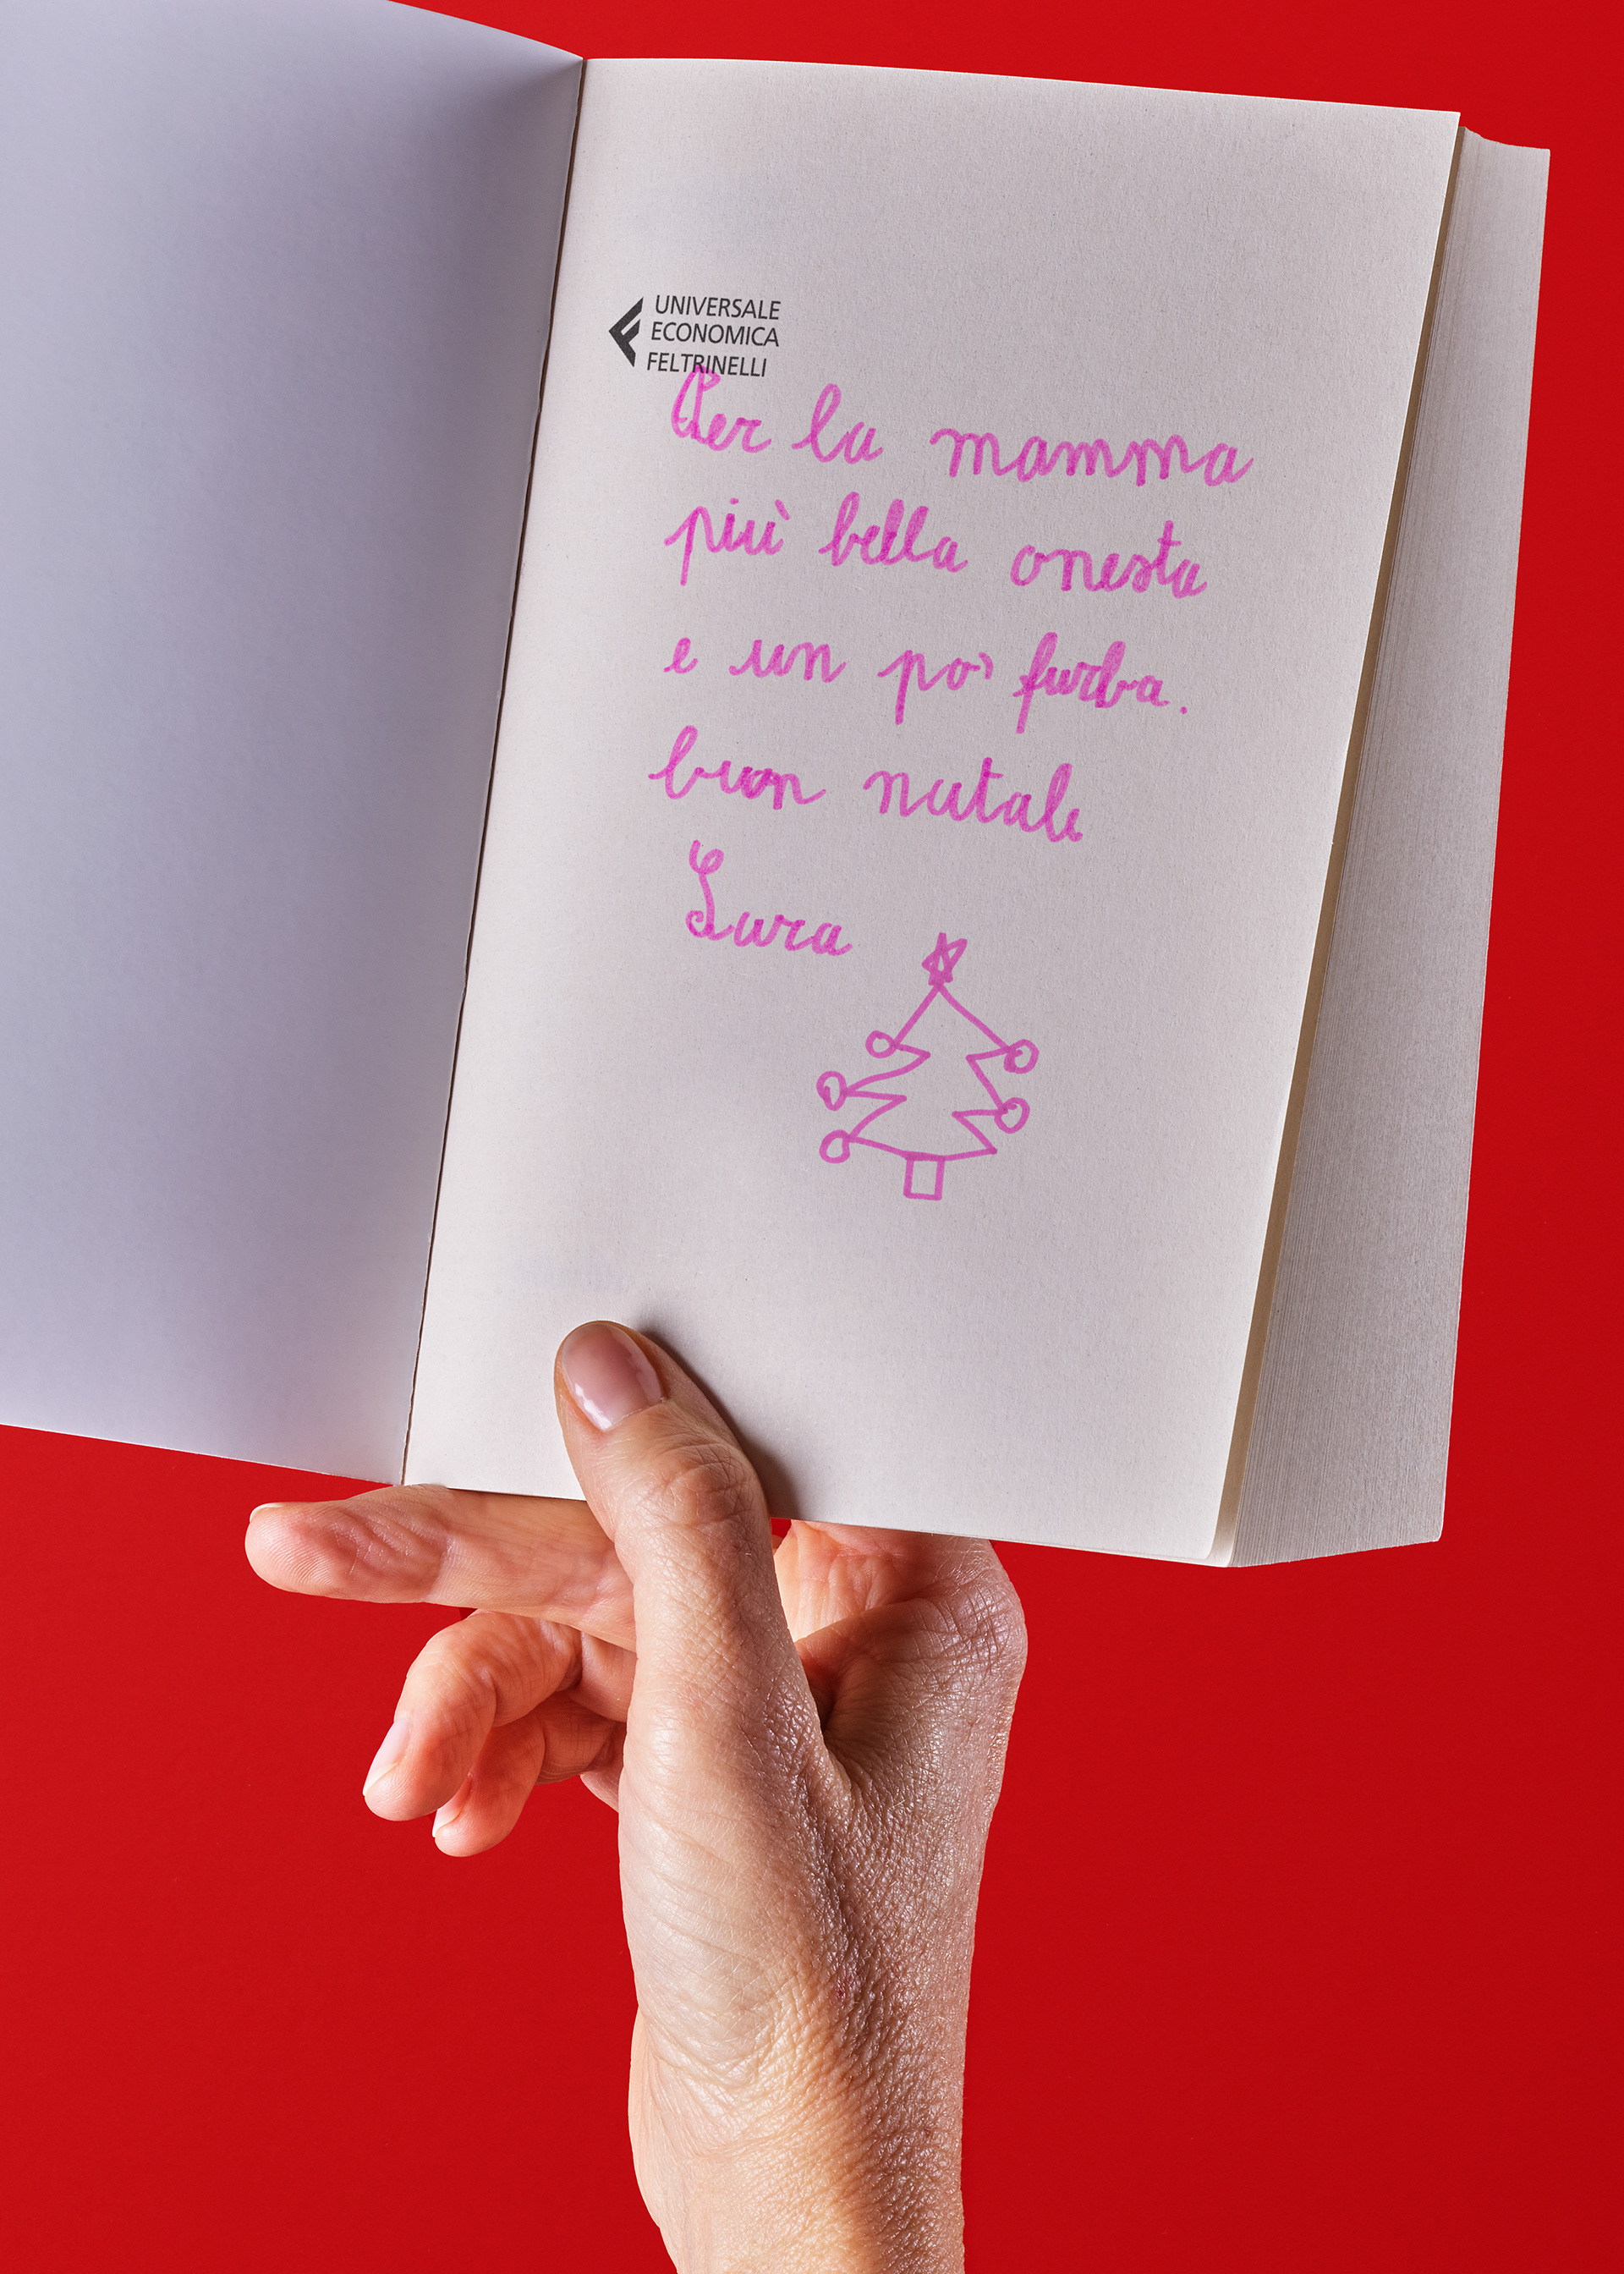 UNIVERSALE
ECONOMICA
FELTRINELLI
Per la mamma
più bella onesta
e un po' furba.
buon natale
Sara